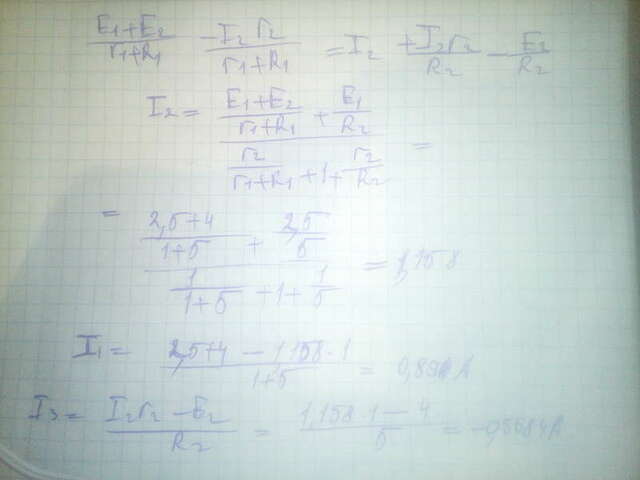 (E₁+E₂)/(r₁+R₁) - (I₂r₂)/(r₁+R₁) = I₂ + (I₂r₂)/R₂ - E₂/R₂
I₂ = ((E₁+E₂)/(r₁+R₁) + E₁/R₂)/(r₂/(r₁+R₁) + 1 + r₂/R₂) =
= ((2,5+4)/(1+5) + 2,5/5)/(1/(1+5) + 1 + 1/5) = 1,158
I₁ = (2,5+4 - 1,158·1)/(1+5) =
I₃ = (I₂r₂ - E₂)/R₂ = (1,158·1 - 4)/5 =